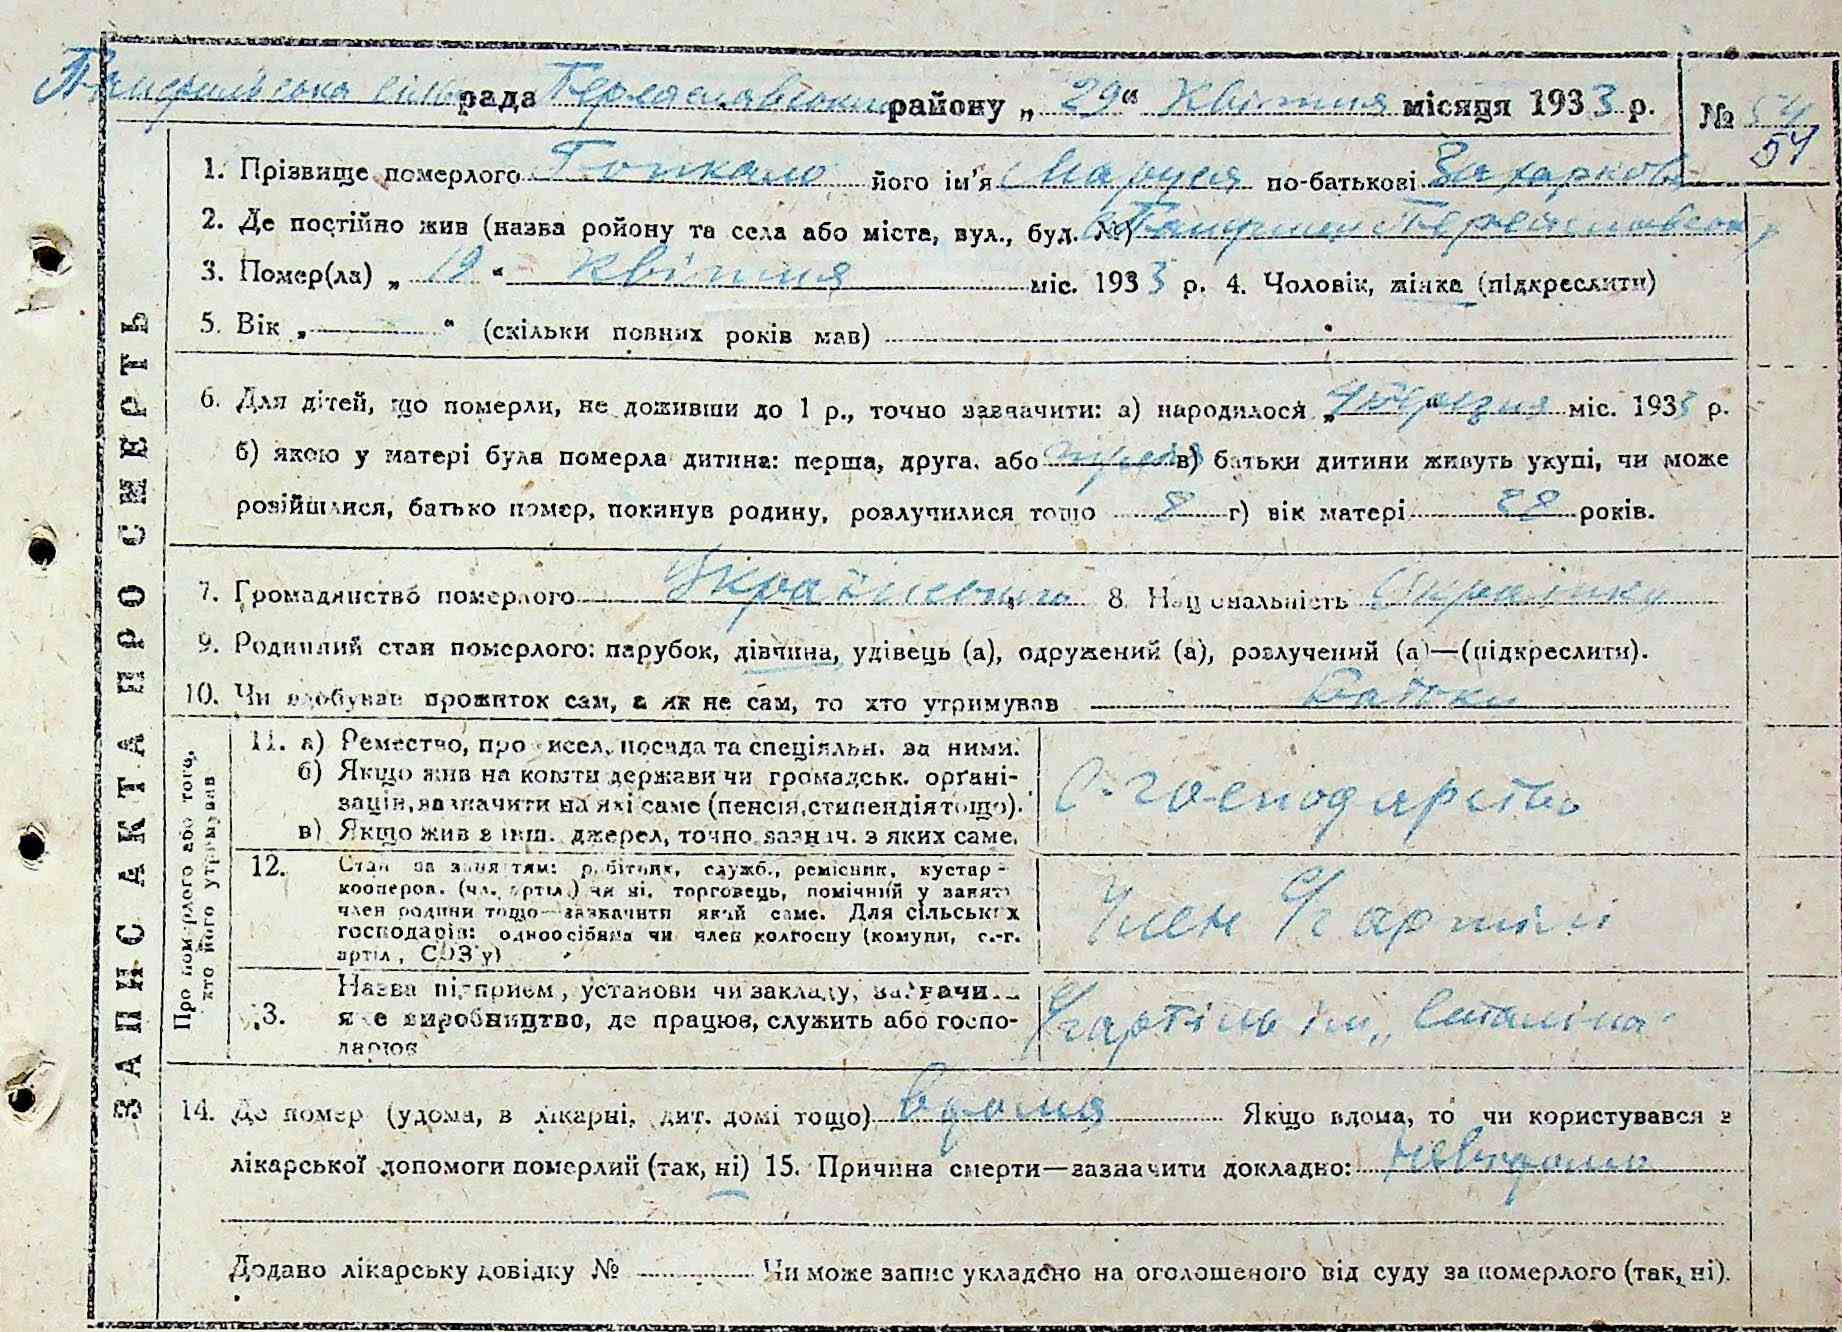 рада Переяславського району „ 29 “ Квітня місяця 1933 р. № 54
54
1. Прізвище померлого його ім'я Маруся по-батькові Захарков
2. Де постійно жив (назва ройону та села або міста, вул., буд. №)
3. Помер(ла) „ 19 “ Квітня міс. 1933 р. 4. Чоловік, жінка (підкреслити)
5. Вік „ “ (скільки повних років мав)
6. Для дітей, що померли, не доживши до 1 р., точно зазначити: а) народилося „ “ березня міс. 1933 р.
б) якою у матері була померла дитина: перша, друга, або третя в) батьки дитини живуть укупі, чи може
розійшлися, батько помер, покинув родину, розлучилися тощо 8 г) вік матері 28 років.
7. Громадянство померлого 8. Національність Українка
9. Родинний стан померлого: парубок, дівчина, удівець (а), одружений (а), розлучений (а)—(підкреслити).
10. Чи здобував прожиток сам, а як не сам, то хто утримував Батьки
ЗАПИС АКТА ПРО СМЕРТЬ
Про померлого або того, хто його утримував
11. а) Ремество, професія, посада та спеціяльн. за ними.
б) Якщо жив на кошти держави чи громадськ. органі-
зацій, зазначити на які саме (пенсія, стипендія тощо).
в) Якщо жив з інш. джерел, точно зазнач. з яких саме.
С-господарство
12. Стан за заняттям: робітник, служб., ремісник, кустар-
кооперов. (чл. артіл.) чи ні, торговець, помічний у занятт
член родини тощо—зазначити який саме. Для сільських
господарів: одноосібник чи член колгоспу (комуни, с.-г.
артіл., СОЗ'у)
Член С/г артілі
13. Назва підприєм., установи чи закладу, зазначити
яке виробництво, де працює, служить або госпо-
дарює
С/г артіль ім. „Сталіна"
14. Де помер (удома, в лікарні, дит. домі тощо) вдома Якщо вдома, то чи користувався з
лікарської допомоги померлий (так, ні) 15. Причина смерти—зазначити докладно: невідомо
Додано лікарську довідку № Чи може запис укладено на оголошеного від суду за померлого (так, ні).